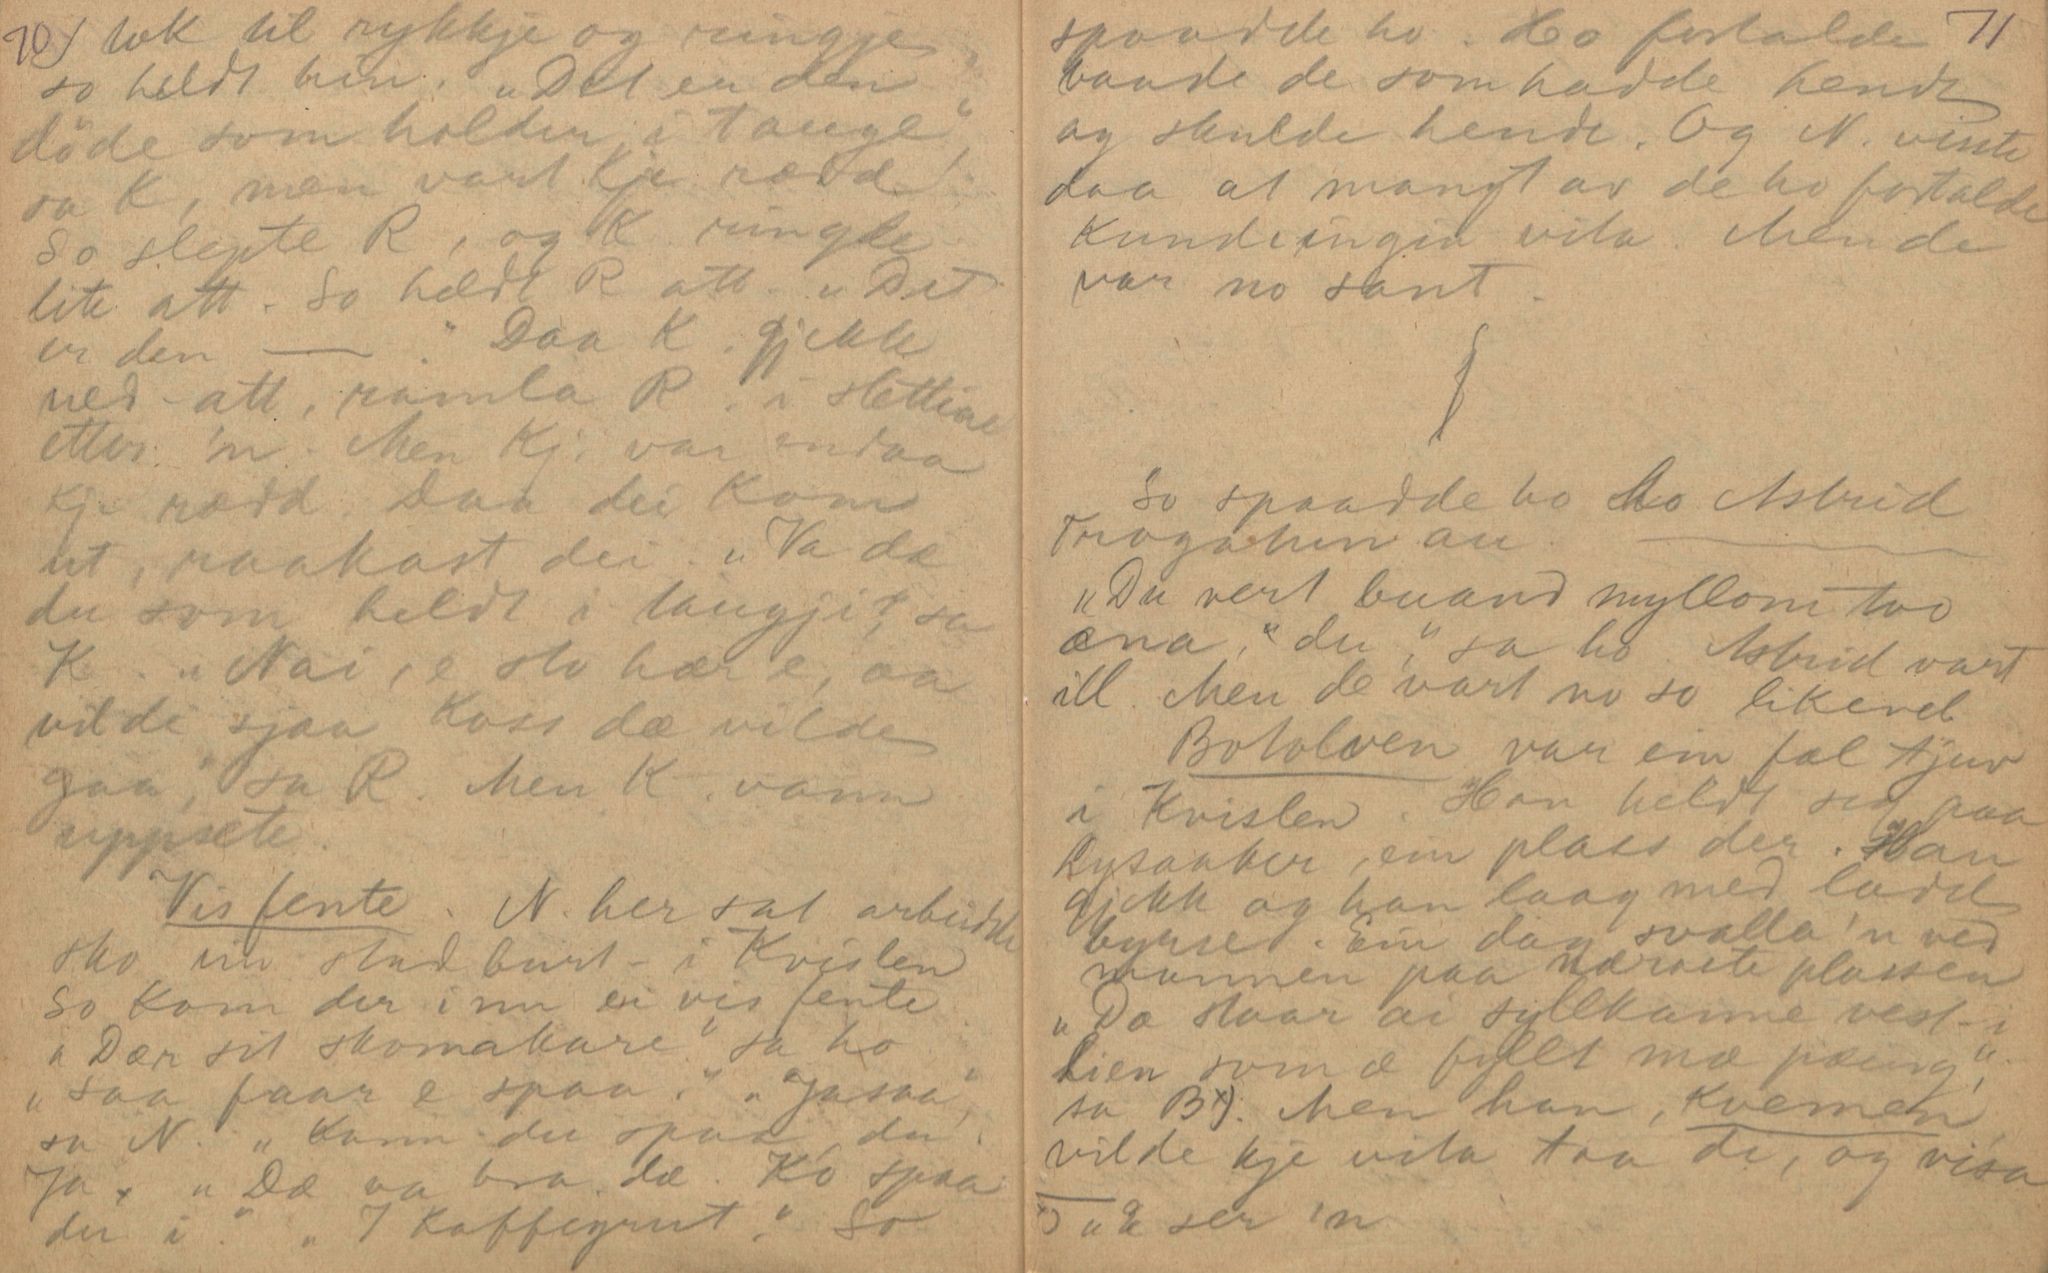 70) tok til rykkje og ringje,
so heldt hin. "Det er den
döde som holder i tauge",
sa K, men vart kje rædd.
So slepte R, og K ringde
lite att. So heldt R att. "Det
er den —— ." Daa K. gjekk
ned-att, ramla R. i slettine
etter 'n. Men Kj. var endaa
kje rædd. Daa dei kom
ut, raakast dei. "Va dæ
du som heldt i taugji?" sa
K. "Nai, e sto hær e, aa
vilde sjaa koss dæ vilde
gaa," sa R. Men K. vann
uppsete.
Visfente. N. her sat arbeidde
sko ein stad burt-i Kvislen
So kom der inn ei vis fente
"Dær sit skomakare" sa ho
"saa faar e spaa." "Jasaa,"
sa N. "Kann du spaa, du.
Ja. "Dæ va bra dæ. Ko spaa
du i." "I kaffigrut." So
spaadde ho. Ho fortalde 71
baade de som hadde hendt
og skulde hende. Og N. visste
daa at mangt av de ho fortalde
kunde ingin vita. Men de
var no sant.
So spaadde ho ho Astrid
Trøgahun au.
"Du vert buand myllom two
æna," du," sa ho. Astrid vart
ill. Men de vart no so likevel.
Botolven var ein fæl tjuv
i Kvislen. Han heldt seg paa
Rysaaker, ein plass der. Han
gjekk og han laag med ladd
byrse. Ein dag svalla 'n ved
mannen paa næraste plassen
"Dæ staar ai syllkanne vest-i
lien som æ fyllt mæ pæing",
sa B x). Men han, Kvemen,
vilde kje vita taa di, og visa
x) "æ ser 'n